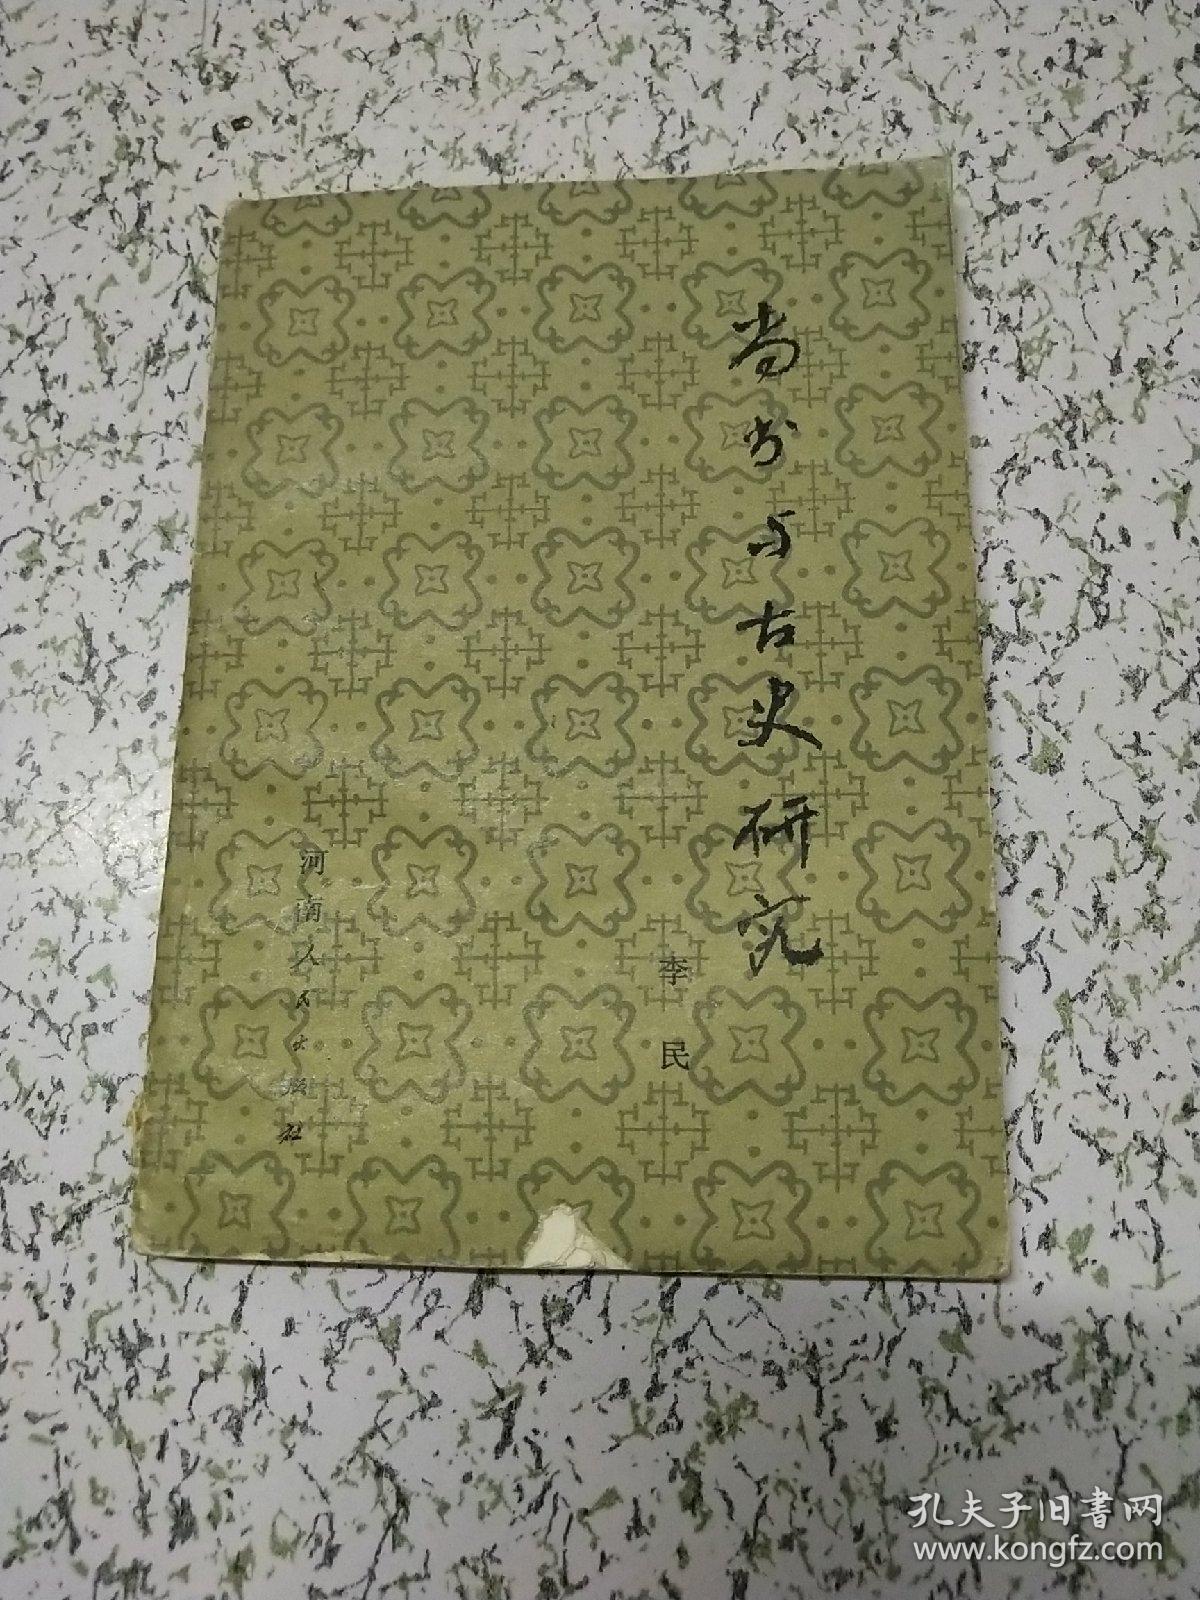 尚书与古史研究
李民
河南人民出版社
孔夫子旧書网
www.kongfz.com